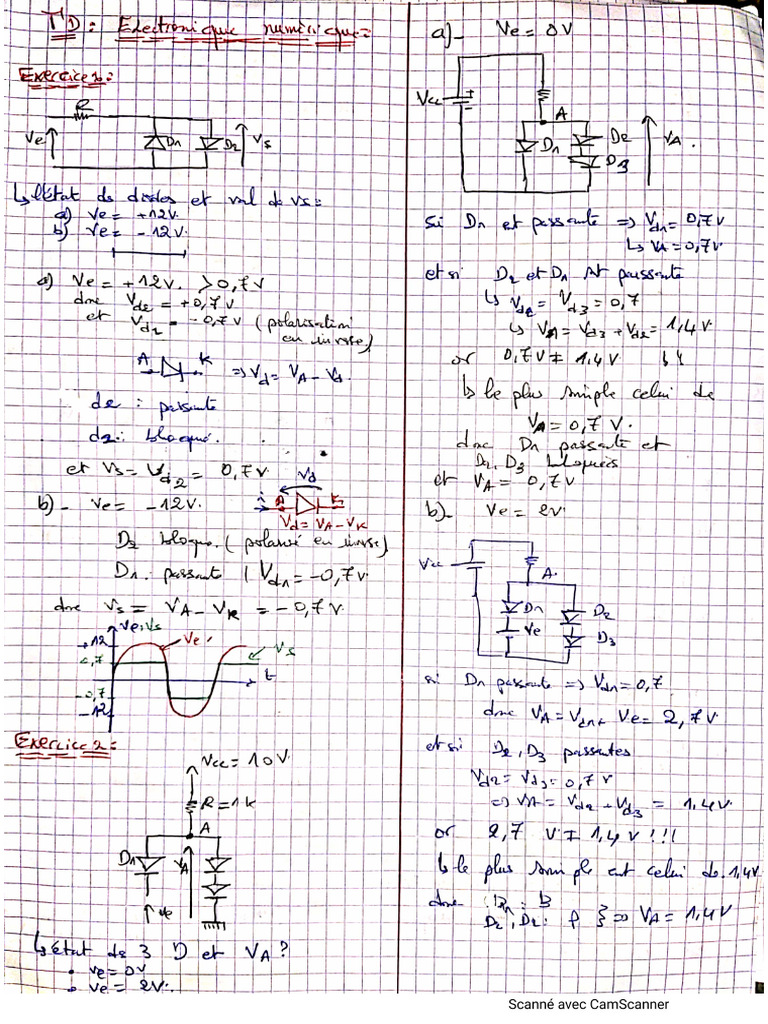 TD: Electronique numérique:
Exercice 1:
R
Ve
D1
D2
Vs
↳ l'état de diodes et val de vs:
a) Ve = +12V.
b) Ve = -12V.
a) Ve = +12V. > 0,7V
donc Vd2 = +0,7V
et Vd1 = -0,7V (polarisation
en inverse)
A K ⇒ Vd = VA - Vk.
d2 : passante
d1 : bloqué.
et Vs = Vd2 = 0,7V.
b)- Ve = -12V.
Vd
i A K
Vd = VA - VK
D2 bloque. (polarisé en inverse)
D1. passante | Vd1 = -0,7V.
donc Vs = VA - VK = -0,7V.
Ve, Vs
+12
0,7
-0,7
-12
Ve
Vs
t
Exercice 2:
Vcc = 10V.
R = 1K
A
D1
VA
Ve
↳ état de 3 D et VA ?
• Ve = 0V
• Ve = 2V.
a)- Ve = 0V
Vcc
A
D1
D2
D3
VA.
si D1 est passante ⇒ Vd1 = 0,7V
↳ VA = 0,7V
et si D2 et D1 st passante
↳ Vd2 = Vd3 = 0,7
↳ VA = Vd3 + Vd2 = 1,4V.
or 0,7V ≠ 1,4V !!
↳ le plus simple celui de
VA = 0,7V.
donc D1 passante et
D2, D3 bloquées
et VA = 0,7V
b)- Ve = 2V.
Vcc
A.
D1
Ve
D2
D3
si D1 passante ⇒ Vd1 = 0,7
donc VA = Vd1 + Ve = 2,7V
et si D2, D3 passantes
Vd2 = Vd3 = 0,7V
⇒ VA = Vd2 + Vd3 = 1,4V.
or 2,7 V ≠ 1,4V !!!
↳ le plus simple est celui de 1,4V
donc D1 : B
D2, D2 : P } ⇒ VA = 1,4V
Scanné avec CamScanner